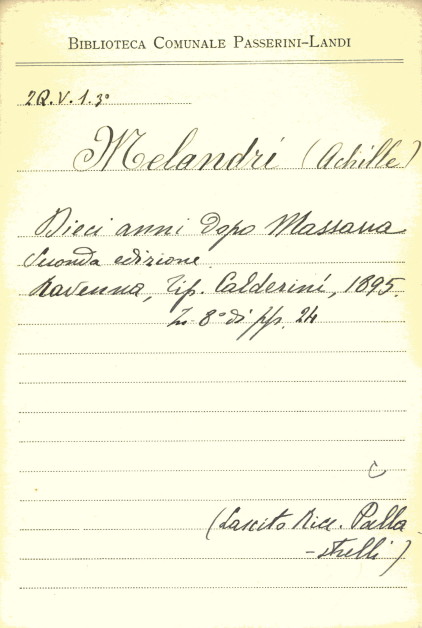 BIBLIOTECA COMUNALE PASSERINI-LANDI
2Q.V.1.3°
Melandri (Achille)
Dieci anni dopo Massaua
Seconda edizione.
Ravenna, Tip. Calderini, 1895.
In 8° di pp. 24
C
(Lascito Ricc. Palla-
-strelli)